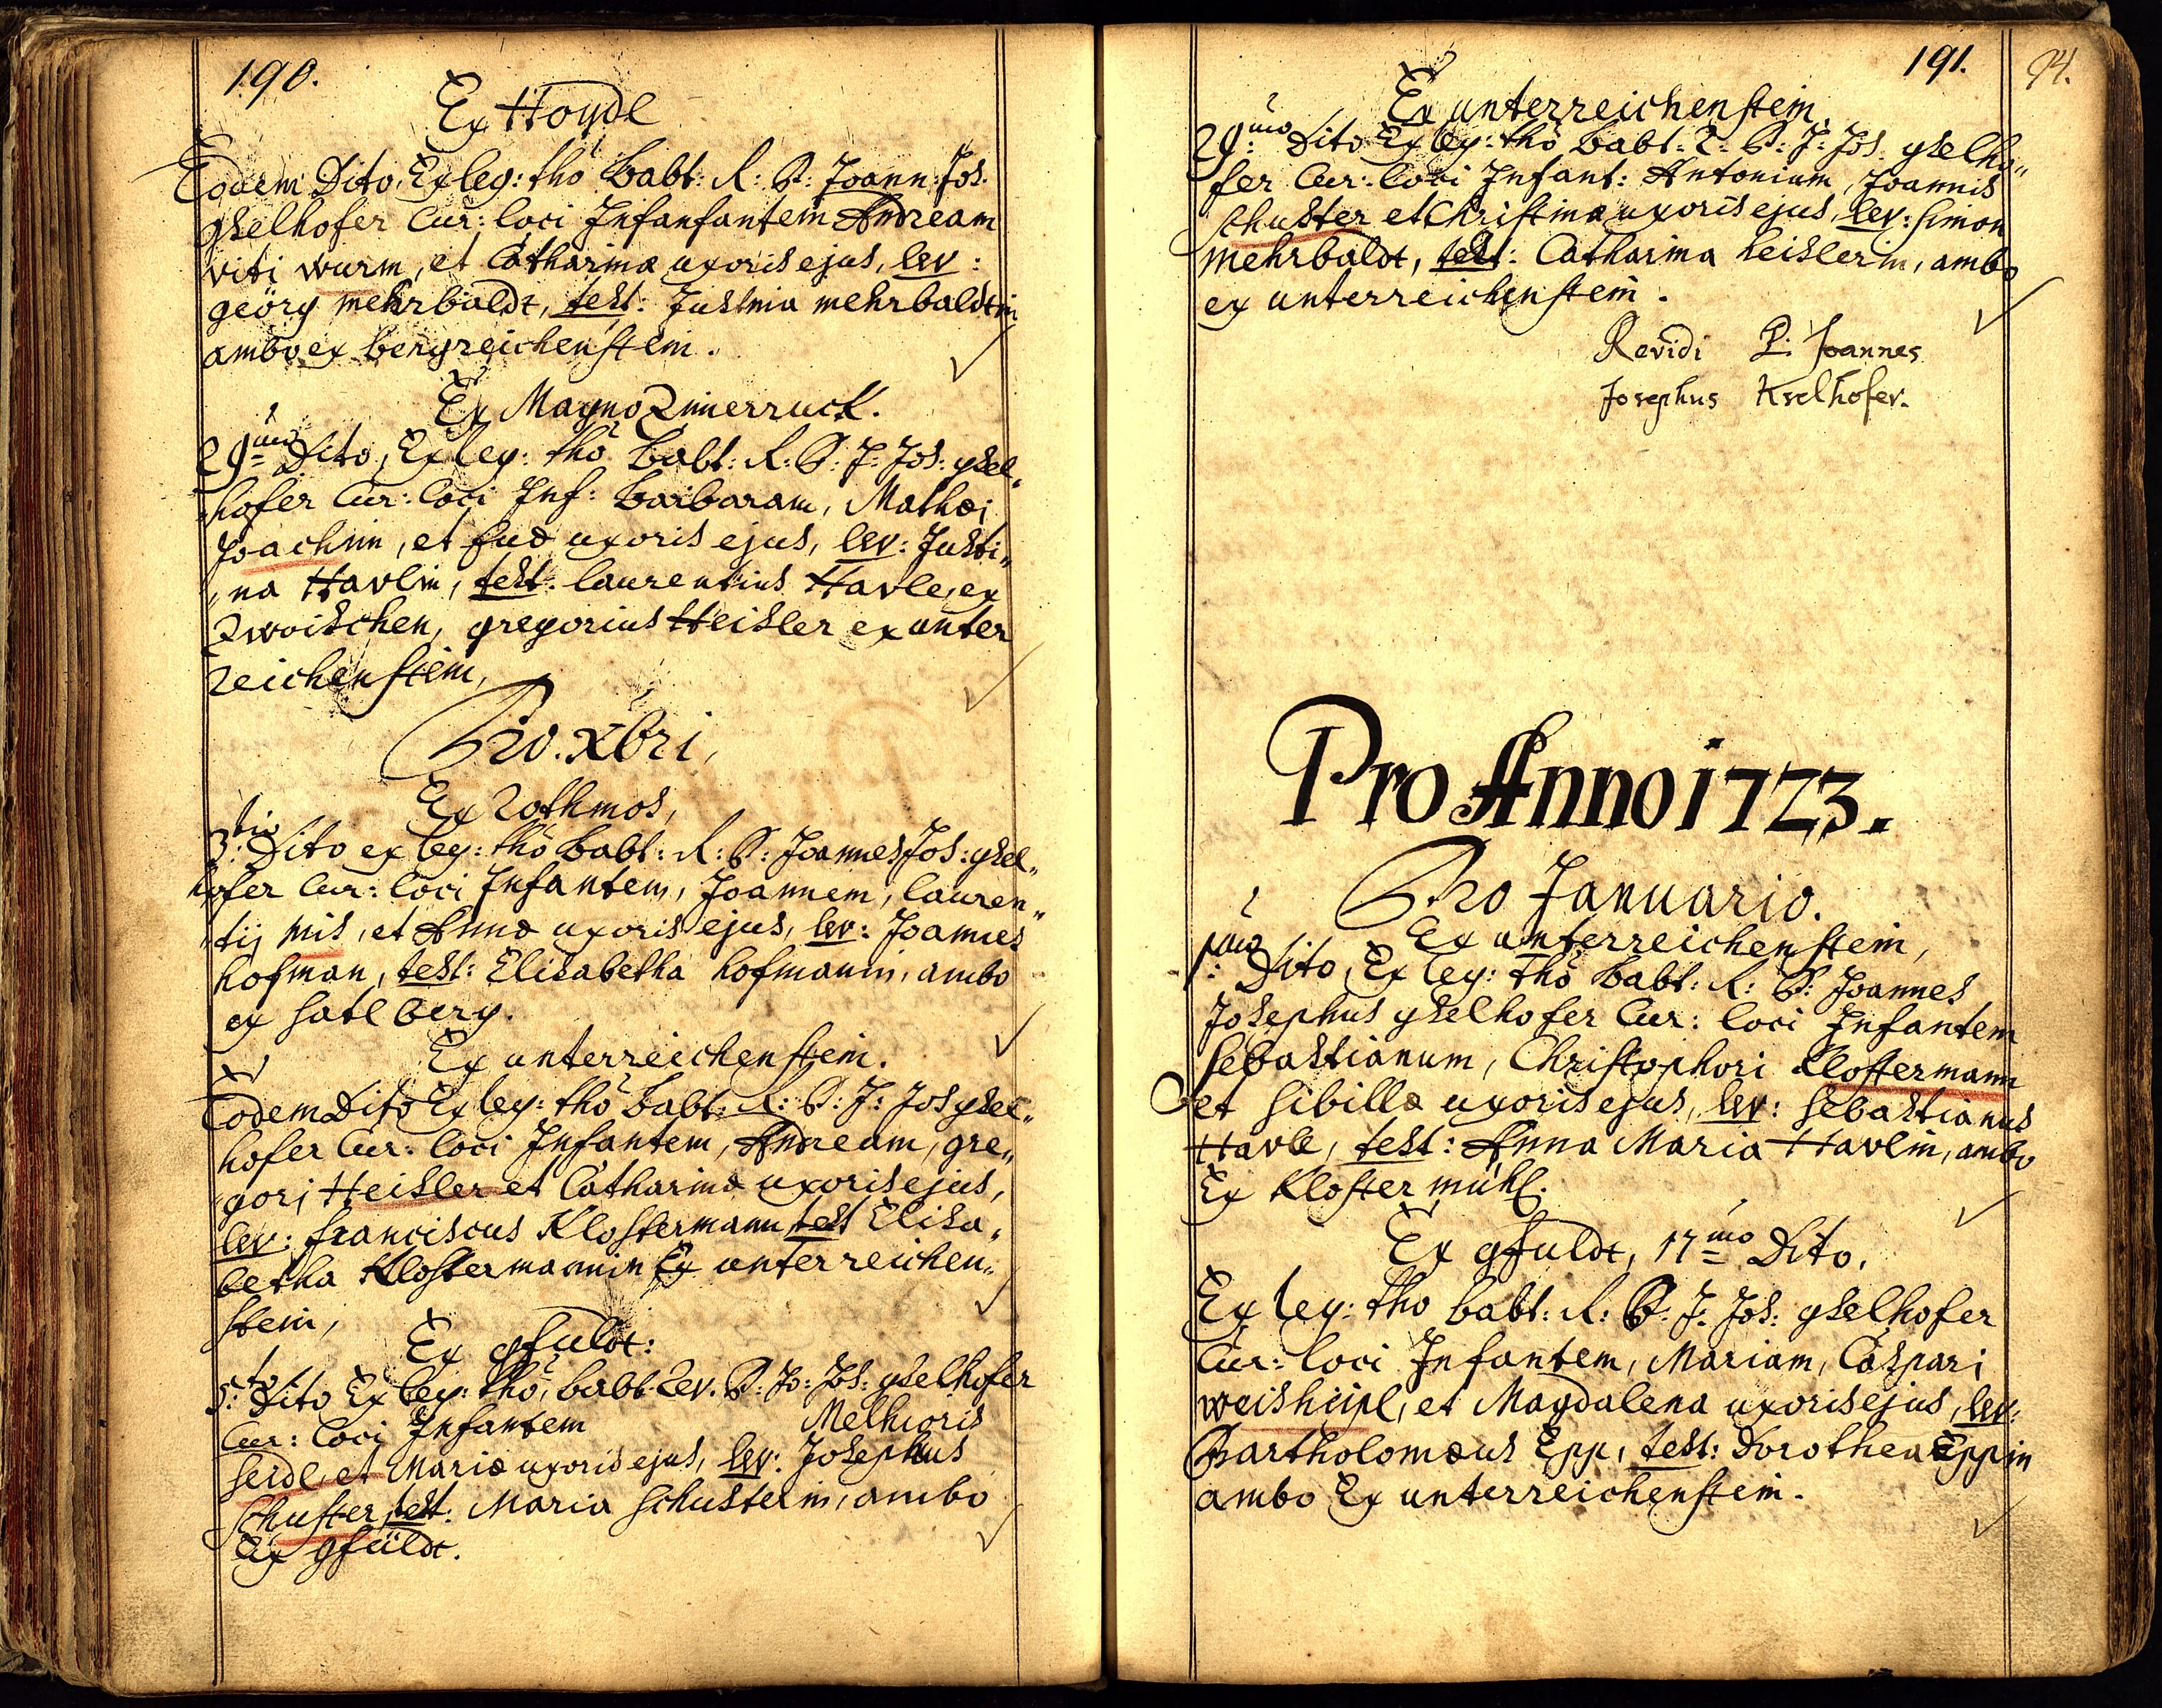 190.
Ex Haydl
Eodem Dito, Ex leg: thô babt: R: P: Joann: Jos.
gselhofer Cur: loci Infanfantem Andream
viti wurm, et Catharinæ uxoris ejus, lev:
geörg mehrbaldt, test: Justina mehrbaldtin
ambo ex bergreichenstein.
Ex Magno Zimerruck.
29mo Dito, Ex leg: thô babt: R: P: J: Jos: gsel„
hofer Cur: loci Inf: barbaram, Mathæi
Joachim, et Evæ uxoris ejus, lev: Justi„
„na Havlin, test: laurentius Havle, ex
Zwoischen, gregorius Heisler ex unter
reichenstein,
Pro. Xbri,
Ex rothmos,
3tio: Dito ex leg: thô babt: R: P: Joannes Jos: gsel„
hofer Cur: loci Infantem, Joannem, lauren„
„tij mis, et Annæ uxoris ejus, lev: Joannes
hofman, test: Elisabetha hofmanin, ambo
ex satlberg.
Ex unterreichenstein.
Eodem Dito Ex leg: thô babt: R: P: J: Jos gsel„
hofer Cur: loci Infantem, Andream, gre„
„gorj Heisler et Catharinæ uxoris ejus,
lev: franciscus Klostermann, test Elisa„
betha Klostermannin Ex unterreichen„
stein,
Ex gfuldt:
5:to Dito Ex leg: thô, babt: Rev. P: Jo: Jos: gselhofer
Cur: loci Infantem Melhioris
seidl, et Mariæ uxoris ejus, lev: Josephus
schuster, test: Maria schusterin, ambo
Ex gfüldt.
191.
94.
Ex unterreichenstein.
29:mo Dito Ex leg: thô babt: R: P: J: Jos: gselho„
fer Cur: loci Infant: Antonium, Joannis
schuster et Christinæ uxoris ejus, lev: simon
mehrbaldt, test: Catharina heislerin, ambo
ex unterreichenstein.
Revidi P: Joannes
Josephus Kselhofer.
Pro Anno 1723.
Pro Januario.
Ex unterreichenstein,
1:mo Dito, Ex leg: thô babt: R: P: Joannes
Josephus gselhofer Cur: loci Infantem
sebastianum, Christophori Klostermann
et sibillæ uxoris ejus, lev: sebastianus
Havle, test: Anna Maria Havlin, ambo
Ex Klostermühl.
Ex gfuldt, 17mo Dito.
Ex leg: tho babt: R: P: J: Jos: gselhofer
Cur: loci Infantem, Mariam, Caspari
weisheipl, et Magdalena uxoris ejus, lev:
Bartholomæus Epp, test: Dorothea Eppin
ambo Ex unterreichenstein.